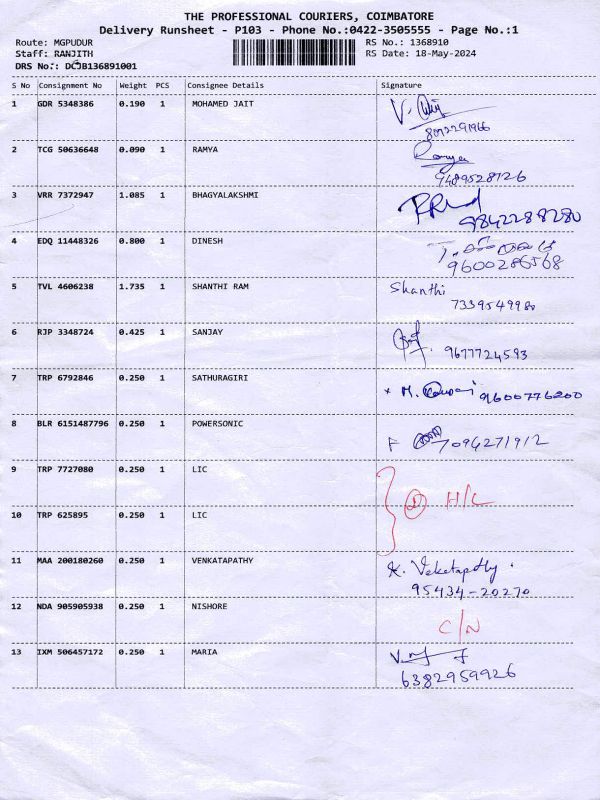 THE PROFESSIONAL COURIERS, COIMBATORE
Delivery Runsheet - P103 - Phone No.:0422-3505555 - Page No.:1
Route: MGPUDUR RS No.: 1368910
Staff: RANJITH RS Date: 18-May-2024
DRS No.: DCJB136891001
S No Consignment No Weight PCS Consignee Details Signature
1 GDR 5348386 0.190 1 MOHAMED JAIT
8072291966
2 TCG 50636648 0.090 1 RAMYA Ramya
9489528726
3 VRR 7372947 1.085 1 BHAGYALAKSHMI
9842288280
4 EDQ 11448326 0.800 1 DINESH
9600286568
5 TVL 4606238 1.735 1 SHANTHI RAM Shanthi
7339549980
6 RJP 3348724 0.425 1 SANJAY
9677724593
7 TRP 6792846 0.250 1 SATHURAGIRI
9600776200
8 BLR 6151487796 0.250 1 POWERSONIC
7094271912
9 TRP 7727080 0.250 1 LIC
H/L
10 TRP 625895 0.250 1 LIC
11 MAA 200180260 0.250 1 VENKATAPATHY K. Veketapathy
95434-20270
12 NDA 905905938 0.250 1 NISHORE
C/N
13 IXM 506457172 0.250 1 MARIA
6382959926